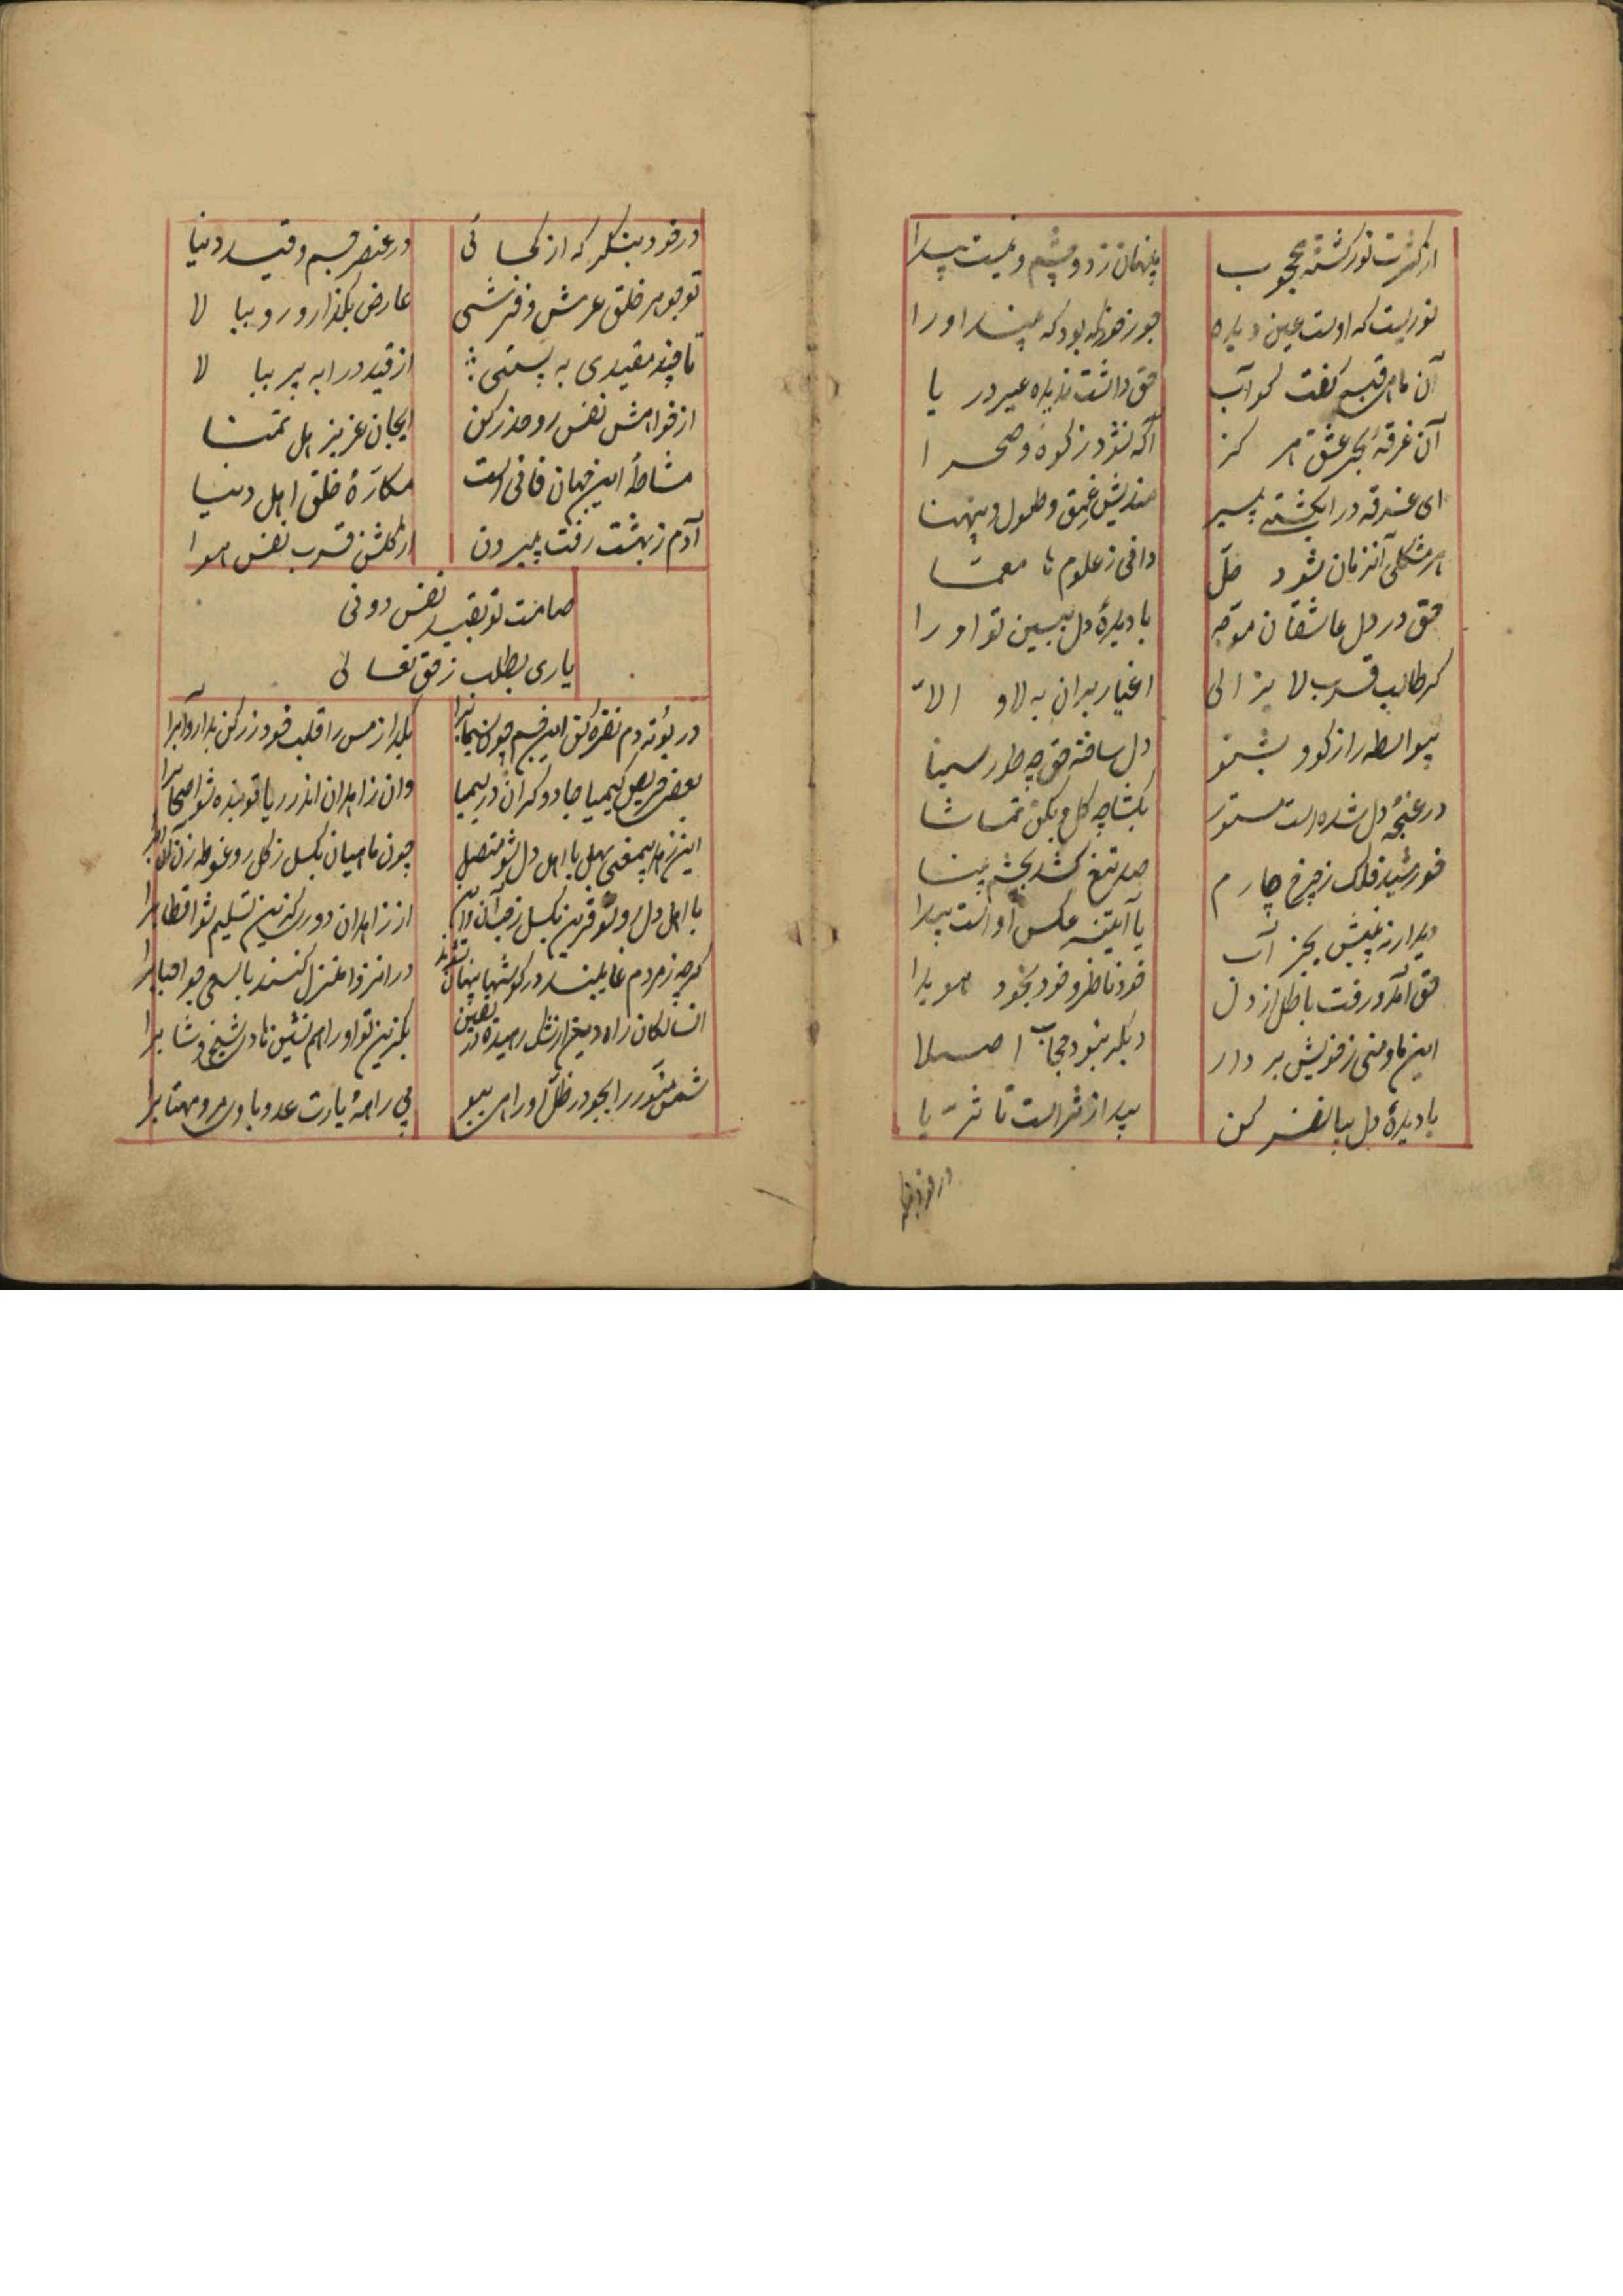 از کثرت نور گشته محجوب
پنهان ز دو چشم و نیست پیدا
نوریست که اوست عین دیده
جز خود که بود که بیند او را
آن ماهی قبه گفت کو آب
حق داشت ندیده غیر دریا
آن غرقهٔ بحر عشق هرگز
آگه نشود ز کوه و صحرا
ای غرقه در اب کشتی پیر
مندیش عمیق و طول و پهنا
هر مشکلی آنزمان شود حلّ
دافی ز علوم ما معمّا
حق در دل عاشقان موجّه
با دیدهٔ دل ببین تو او را
گر طالب قرب لا یزالی
اغیار بران به لا و الاّ
بیواسطه راز گو و بشنو
دل ساخته حق چه طور سینا
در غنچهٔ دل شده است مستور
بگشا چه گل و بکن تماشا
خورشید فلک ز چرخ چارم
صد تیغ کشد بچشم بینا
دیدار نه پیش بجز آب
یا آینه عکس او است پیدا
حق آمد و رفت باطل از دل
خود ناظر و خود بخود هویدا
این ما و منی ز خویش بردار
دیگر نبود حجاب اصلا
با دیدهٔ دل بیا نظر کن
پیدا ز ثراست تا ثریّا
در خود بنگر که از کجائی
در عنصر جسم و قید دنیا
تو جوهر خلق عرش و فرشی
عارض بگذار و رو ببالا
تا چند مقیدی به پستی
از قید درا بپر ببالا
از خواهش نفس رو حذر کن
ایجان عزیز اهل تمنا
مشاطهٔ این جهان فانی است
مکارهٔ خلق اهل دنیا
آدم ز بهشت رفت بیرون
از گلشن قرب نفس هوا
صامت تو بقید نفس دونی
یاری بطلب ز حق تعالی
در بوته دم نقره کن این جسم چون سیماب را
بگداز مس را قلب خود زر کن بدار و آب را
بعضی حریص کیمیا جادوگران در لیمیا
وان زاهدان اندر ریا تو بنده شو اصحاب را
این زهد بیمعنی بهل با اهل دل شو متصل
چون ماهیان بگسل ز گل رو غوطه زن
با اهل دل رو شو قرین بگسل ز جهان و این
از زاهدان دوری گزین تسلیم شو اقطاب را
گرچه ز مردم غایبند در گوشها پنهان شوند
در انزوا منزل کنند بالسعی جو احباب را
السالکان راه دین از شک رهیده در یقین
بگزین تو او را همنشین هادی شیخ و شاب را
شمس منور را بجو در ظل او راهی بپو
بی راهه یارت عدو باور مرو مهتاب را
در خود بنگر